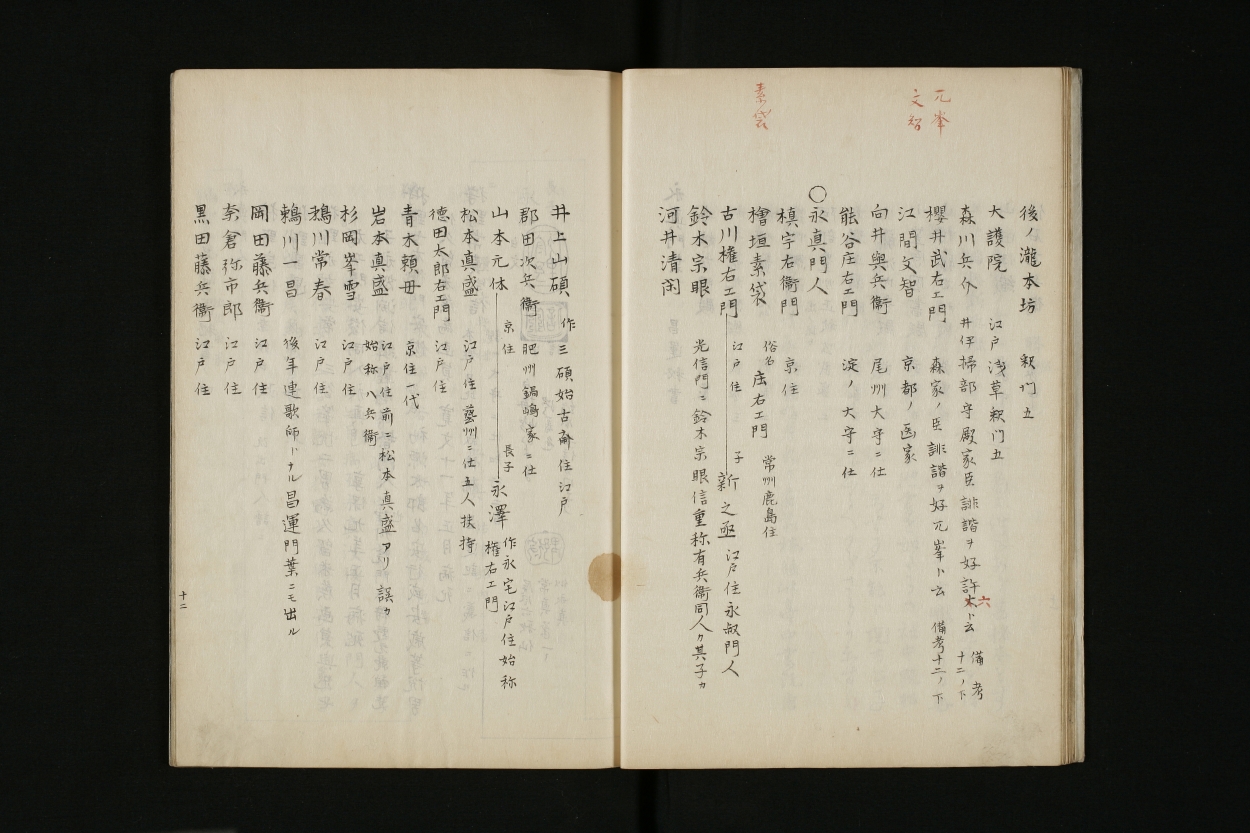 兀峯
文智
素袋
後ノ瀧本坊 釈門五
大護院 江戸浅草釈门五
森川兵介 井伊掃部守殿家臣誹諧ヲ好許六ト云 備考十二ノ下
櫻井武右エ門 森家ノ臣誹諧ヲ好兀峯ト云 備考十二ノ下
江間文智 京都ノ医家
向井與兵衛 尾州大守ニ仕
熊谷庄右エ門 淀ノ大守ニ仕
○永真門人
槙宇右衛門 京住
檜垣素袋 俗名庄右エ門 常州鹿島住
古川権右エ門 江戸住 子 新之丞 江戸住永叔門人
鈴木宗眼 光信門ニ鈴木宗眼信重称有兵衛同人カ其子カ
河井清閑
井上山碩 作三碩始古斎住江戸
郡田次兵衛 肥州鍋嶋家ニ仕
山本元休 京住 長子 永澤 作永宅江戸住始称権右エ門
松本真盛 江戸住藝州ニ仕五人扶持
德田太郎右エ門 江戸住
青木頼母 京住一代
岩本真盛 江戸住前ニ松本真盛アリ誤カ
始称八兵衛
杉岡峯雪 江戸住
鵜川常春 江戸住
鵜川一昌 後年連歌師トナル昌運門葉ニモ出ル
岡田藤兵衛 江戸住
奈倉弥市郎 江戸住
黒田藤兵衛 江戸住
十二